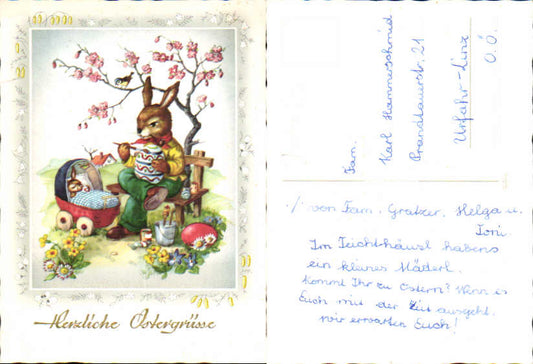 Herzliche Ostergrüsse
Fam.
Karl Hammerschmied
Prandtauerstr. 21
Urfahr-Linz
O.Ö.
./. von Fam. Gratzer, Helga u.
Toni
Im Teichthäusl habens
ein kleines Mäderl.
Kommt Ihr zu Ostern? Wenn es
Euch mit der Zeit ausgeht,
wir erwarten Euch!